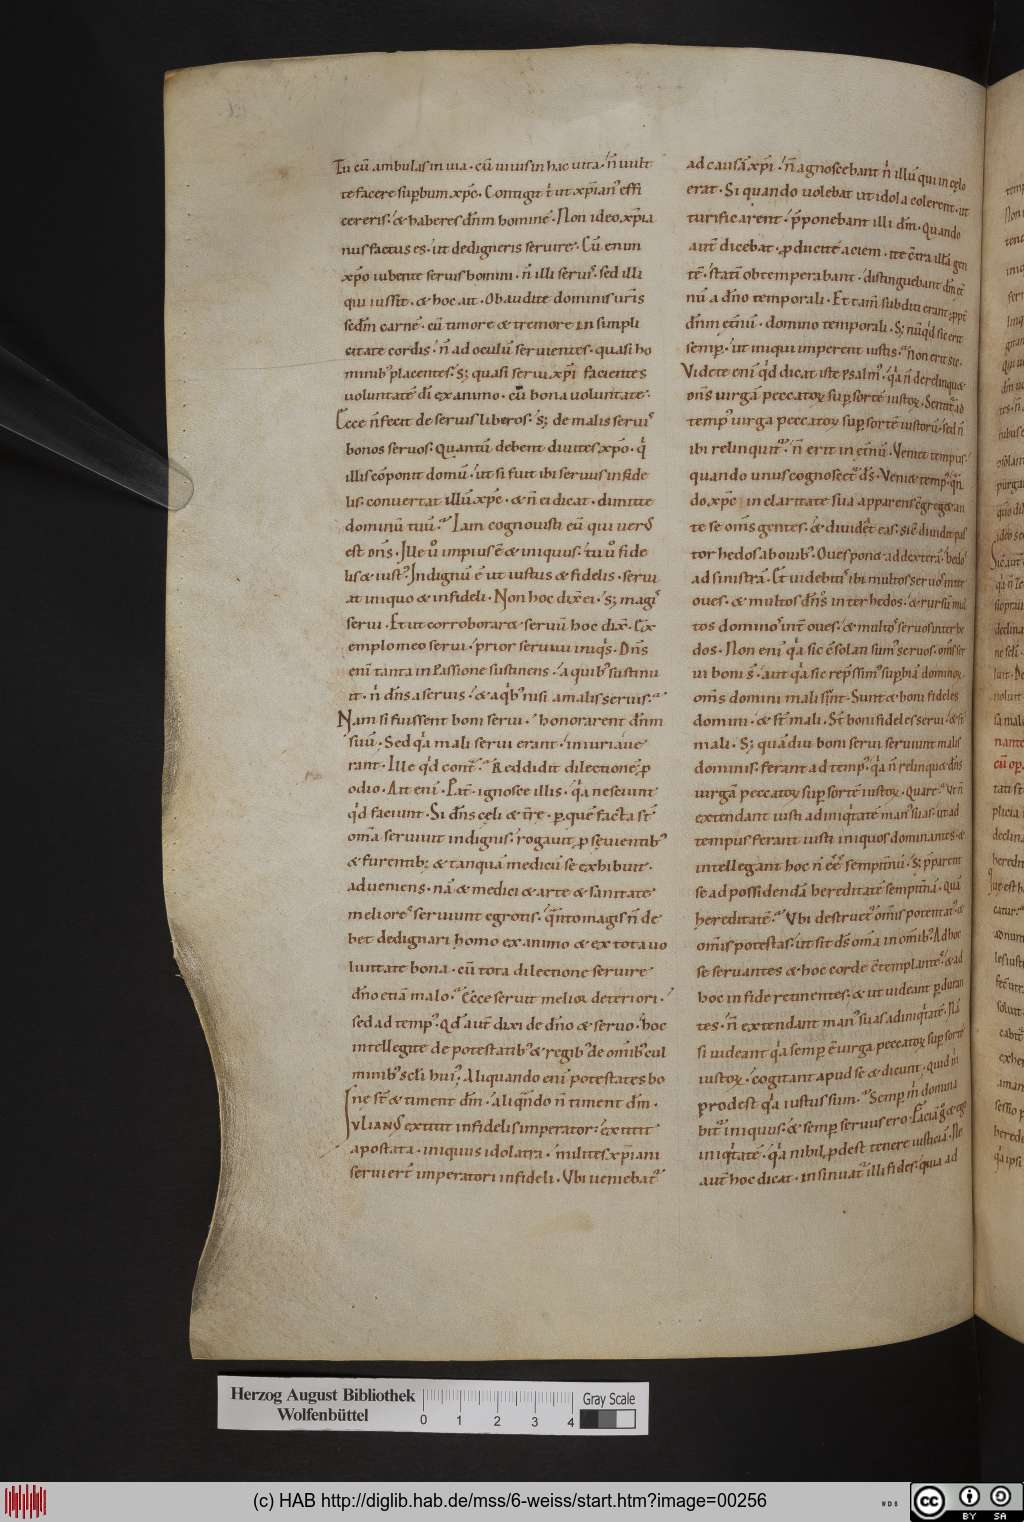 Tu cū ambulas in uia · cū uiuis in hac uita · n̄ uult
te facere supbum xp̄c · Contigit t̄ ut xp̄ian' effi
cereris · & haberes dn̄m hominē · Non ideo xp̄ia
nus factus es · ut dedigneris seruire · Cū enim
xp̄o iubente seruis homini · n̄ illi seruis · sed illi
qui iussit · & hoc ait · Obaudite dominis ur̄is
sedm̄ carnē · cū timore & tremore in simpli
citate cordis · n̄ ad oculū seruientes · quasi ho
minib; placentes · s; quasi serui xp̄i facientes
uoluntatē dī ex animo · cū bona uoluntate ·
Ecce n̄ fecit de seruis liberos · s; de malis serui'
bonos seruos · Quantū debent diuites xp̄o · q̄
illis cōponit domū · ut si fuit ibi seruus infide
lis · conuertat illū xp̄c · & n̄ ei dicat · dimitte
dominū tuū · Iam cognouisti eū qui uer'
est dn̄s · Ille ū impius ē & iniquus · tu ū fide
lis & iust' · Indignū ē ut iustus & fidelis · serui
at iniquo & infideli · Non hoc dix̄ ei · s; magi'
serui · Et ut corroboraret seruū hoc dix̄ · Ex
emplo meo serui · prior seruiui iniq's · Dn̄s
enī tanta in passione sustinens · a quib' sustinu
it · n̄ dn̄s a seruis · & a qb' nisi a malis seruis ·
Nam si fuissent boni serui · honorarent dn̄m
suū · Sed q̄a mali serui erant · iniuriaue
rant · Ille q'd cont̄ · Reddidit dilectionē p
odio · Ait enī · Pat̄ · ignosce illis · q̄a nesciunt
q'd faciunt · Si dn̄s celi & t̄re · p quē facta st̄
om̄a seruiuit indignis · rogauit p seuientib'
& furentib; & tanquā medicū se exhibuit
adueniens · nā & medici & arte & sanitate
meliores seruiunt egrotis · q̄nto magis n̄ de
bet dedignari homo ex animo & ex tota uo
luntate bona · cū tota dilectione seruire
dn̄o etiā malo · Ecce seruit melior deteriori ·
sed ad temp' · Qd' aut̄ dixi de dn̄o & seruo · hoc
intellegite de potestatib' & regib' de omīb' cul
minib' scl̄i hui' · Aliquando enī potestates bo
nę st̄ & timent dm̄ · aliqn̄do n̄ timent dm̄ ·
Iulian' extitit infidelis imperator · extitit
apostata · iniquus idolatra · milites xp̄iani
seruiert̄ imperatori infideli · Ubi ueniebat̄
ad causā xp̄i · n̄ agnoscebant n̄ illū qui in cęlo
erat · Si quando uolebat ut idola colerent · ut
turificarent · p̄ponebant illi dm̄ · Quando
aut̄ dicebat · pducite aciem · ite c̄tra illā gen
tē · statī obtemperabant · distinguebant dn̄m et̄
nū a dn̄o temporali · Et tam̄ subditi erant ppt̄
dn̄m et̄nū · domino temporali · S; nūqd sic erit
semp · ut iniqui imperent iustis · Non erit sic ·
Videte enī q'd dicat iste psalm' · q̄a n̄ derelinqu&
dn̄s uirgā peccatorum sup sortē iustorum · Sentit̄ ad
temp' uirga peccatorum sup sortē iustorū · sed n̄
ibi relinquit̄ · n̄ erit in et̄nū · Veniet tempus ·
quando unus cognoscet̄ ds̄ · Veniet temp' · q̄n
do xp̄c in claritate sua apparens c̄greget an
te se om̄s gentes · & diuidet eas · sicut diuidit pas
tor hedos ab ouib' · Oues ponet ad dexterā · hedos
ad sinistrā · Et uidebitis ibi multos seruos inter
oues · & multos dn̄os inter hedos · & rursū mul
tos dominos int̄ oues · & multos seruos inter he
dos · Non enī q̄a sic c̄solati sum' seruos · om̄s ser
ui boni s̄t · aut q̄a sic rep̄ssim' supbiā dominorum ·
om̄s domini mali sint · Sunt & boni fideles
domini · & st̄ mali · St̄ boni fideles serui · & st̄
mali · S; quādiu boni serui seruiunt malis
dominis · ferant ad temp' · q̄a n̄ relinqu& dn̄s
uirgā peccatorum sup sortē iustorum · Quare · Ut n̄
extendant iusti ad iniq̄tatē man' suas · ut ad
tempus ferant iusti iniquos dominantes · &
intellegant hoc n̄ ēē sempit̄nū · s; p̄parent
se ad possidendā hereditatē sempit̄nā · Quā
hereditatē · Ubi destruet̄ omis potentat' · &
omis potestas · ut sit ds̄ om̄a in omīb' · Ad hoc
se seruantes & hoc corde c̄templantes · & ad
hoc in fide retinentes · & ut uideant pduran
tes · n̄ extendant man' suas ad iniq̄tatē · Nā
si uideant q̄a semp ē uirga peccatorum sup sortē
iustorum · cogitant apud se & dicunt · quid m̄
prodest q̄a iustus sum · Semp m̄ domina
bit̄ iniquus · & semp seruus ero · Faciā g & ego
iniq̄tatē · q̄a nihil pdest tenere iusticiā · Ne
aut̄ hoc dicat · insinuat̄ illi fides · quia ad
Herzog August Bibliothek
Wolfenbüttel
0 1 2 3 4
Gray Scale
(c) HAB http://diglib.hab.de/mss/6-weiss/start.htm?image=00256
cc BY SA